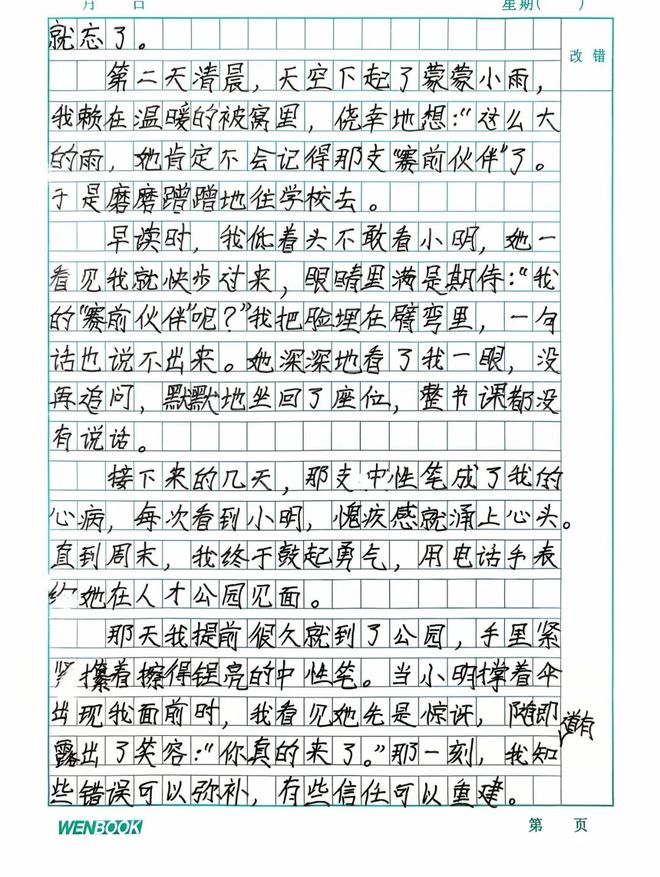 月 日 星期( )
就忘了。
改错
第二天清晨，天空下起了蒙蒙小雨，
我赖在温暖的被窝里，侥幸地想：“这么大
的雨，她肯定不会记得那支“赛前伙伴”了。
于是磨磨蹭蹭地往学校去。
早读时，我低着头不敢看小明，她一
看见我就快步过来，眼睛里满是期待：“我
的“赛前伙伴”呢？”我把脸埋在臂弯里，一句
话也说不出来。她深深地看了我一眼，没
再追问，默默地坐回了座位，整节课都没
有说话。
接下来的几天，那支中性笔成了我的
心病，每次看到小明，愧疚感就涌上心头。
直到周末，我终于鼓起勇气，用电话手表
约她在人才公园见面。
那天我提前很久就到了公园，手里紧
紧攥着擦得锃亮的中性笔。当小明撑着伞
出现我面前时，我看见她先是惊讶，随即
露出了笑容：“你真的来了。”那一刻，我知道有
些错误可以弥补，有些信任可以重建。
WENBOOK 第 页